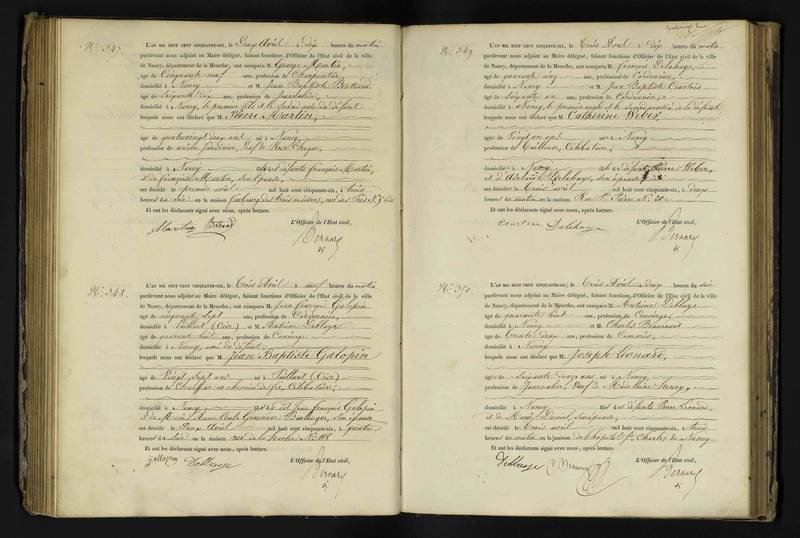 N.º 347.
L'AN MIL HUIT CENT CINQUANTE-SIX, le Deux Avril à dix heures du matin
pardevant nous adjoint au Maire délégué, faisant fonctions d'Officier de l'Etat civil de la ville
de Nancy, département de la Meurthe, ont comparu M. George Martin,
âgé de Cinquante neuf ans, profession de Charpentier,
domicilié à Nancy et M. Jean Baptiste Bertrand
âgé de Soixante dix ans, profession de Journalier,
domicilié à Nancy, le premier fils et le second ami du défunt
lesquels nous ont déclaré que M. Pierre Martin,
âgé de quatrevingt deux ans né à Nancy,
profession de ancien Jardinier, Veuf de Rose
domicilié à Nancy fils de défunts françois Martin,
et de françoise Martin, son épouse,
est décédé le premier avril mil huit cent cinquante-six, à trois
heures du soir en la maison faubourg des trois maisons, rue des
Et ont les déclarants signé avec nous, après lecture.
L'Officier de l'Etat civil,
Martin Bertrand
Bernard
N.º 348.
L'AN MIL HUIT CENT CINQUANTE-SIX, le Trois Avril à neuf heures du matin
pardevant nous adjoint au Maire délégué, faisant fonctions d'Officier de l'Etat civil de la ville
de Nancy, département de la Meurthe, ont comparu M. Jean françois Galopin
âgé de cinquante sept ans, profession de Cordonnier,
domicilié à (Oise) et M. Antoine
âgé de quarante huit ans, profession de Concierge
domicilié à Nancy, ami du défunt,
lesquels nous ont déclaré que M. Jean Baptiste Galopin
âgé de Vingt sept ans né à (Oise)
profession de Chauffeur au chemin de fer, Célibataire,
domicilié à Nancy fils de dit Jean françois Galopin
et de Marie Anne Boulanger, son épouse
est décédé le Deux Avril mil huit cent cinquante-six, à quatre
heures du soir en la maison rue de la N.º 118
Et ont les déclarants signé avec nous, après lecture.
L'Officier de l'Etat civil,
Bernard
N.º 349
L'AN MIL HUIT CENT CINQUANTE-SIX, le Trois Avril à dix heures du matin,
pardevant nous adjoint au Maire délégué, faisant fonctions d'Officier de l'Etat civil de la ville
de Nancy, département de la Meurthe, ont comparu M. françois Delahaye,
âgé de quarante cinq ans, profession de Cordonnier,
domicilié à Nancy et M. Jean Baptiste Courtois
âgé de Soixante un ans, profession de Cordonnier,
domicilié à Nancy, le premier oncle et le second de la défunte
lesquels nous ont déclaré que M. Catherine Weber,
âgé de Vingt un ans né à Nancy
profession de Tailleuse, Célibataire,
domicilié à Nancy fille de défunt Pierre Weber,
et d' Delahaye, son épouse
est décédé le Trois avril mil huit cent cinquante-six, à deux
heures du matin en la maison Rue S.t Pierre N.º
Et ont les déclarants signé avec nous, après lecture.
L'Officier de l'Etat civil,
Courtois Delahaye
Bernard
N.º 350.
L'AN MIL HUIT CENT CINQUANTE-SIX, le Trois Avril à deux heures du soir
pardevant nous adjoint au Maire délégué, faisant fonctions d'Officier de l'Etat civil de la ville
de Nancy, département de la Meurthe, ont comparu M. Antoine
âgé de quarante huit ans, profession de Concierge
domicilié à Nancy et M. Charles
âgé de Trente deux ans, profession de
domicilié à Nancy
lesquels nous ont déclaré que M. Joseph Léonard,
âgé de Soixante ans né à Nancy,
profession de Journalier, Veuf de Henry,
domicilié à Nancy fils de défunts Pierre Léonard,
et de Marie son épouse,
est décédé le Trois avril mil huit cent cinquante-six, à trois
heures du matin en la maison de l'hôpital S.t Charles de Nancy
Et ont les déclarants signé avec nous, après lecture.
L'Officier de l'Etat civil,
Bernard